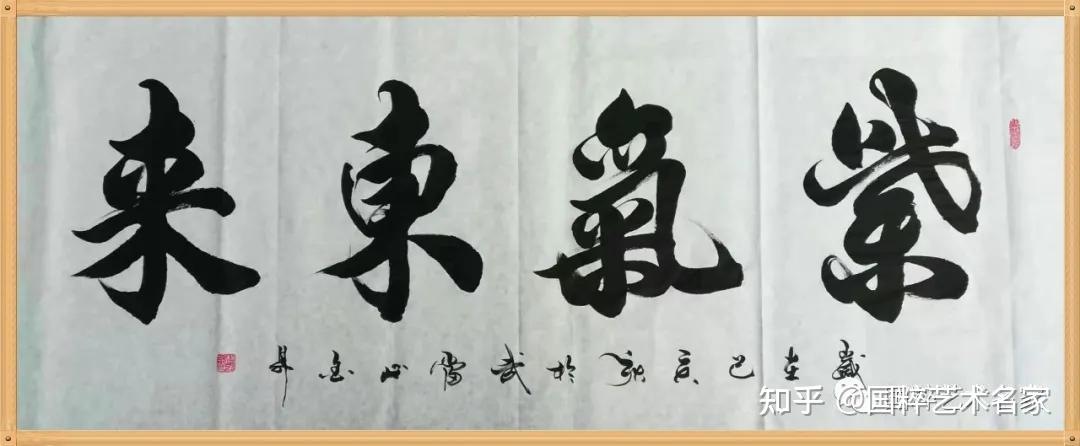 紫氣東来
歲在己亥秋於武當山
知乎 @国粹艺术名家